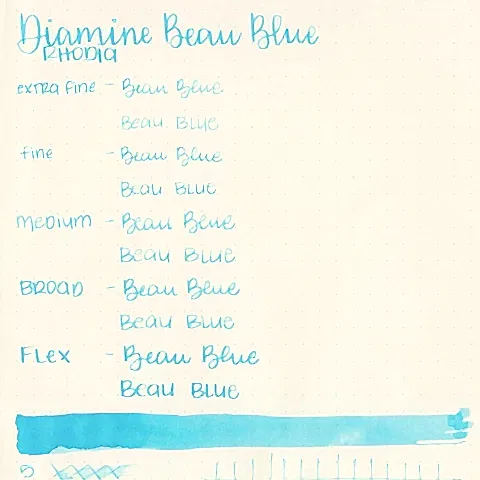 Diamine Beau Blue
RHODIA
extra fine - Beau Blue
Beau Blue
fine - Beau Blue
Beau Blue
medium - Beau Blue
Beau Blue
BROAD - Beau Blue
Beau Blue
FLex - Beau Blue
Beau BLUE
5